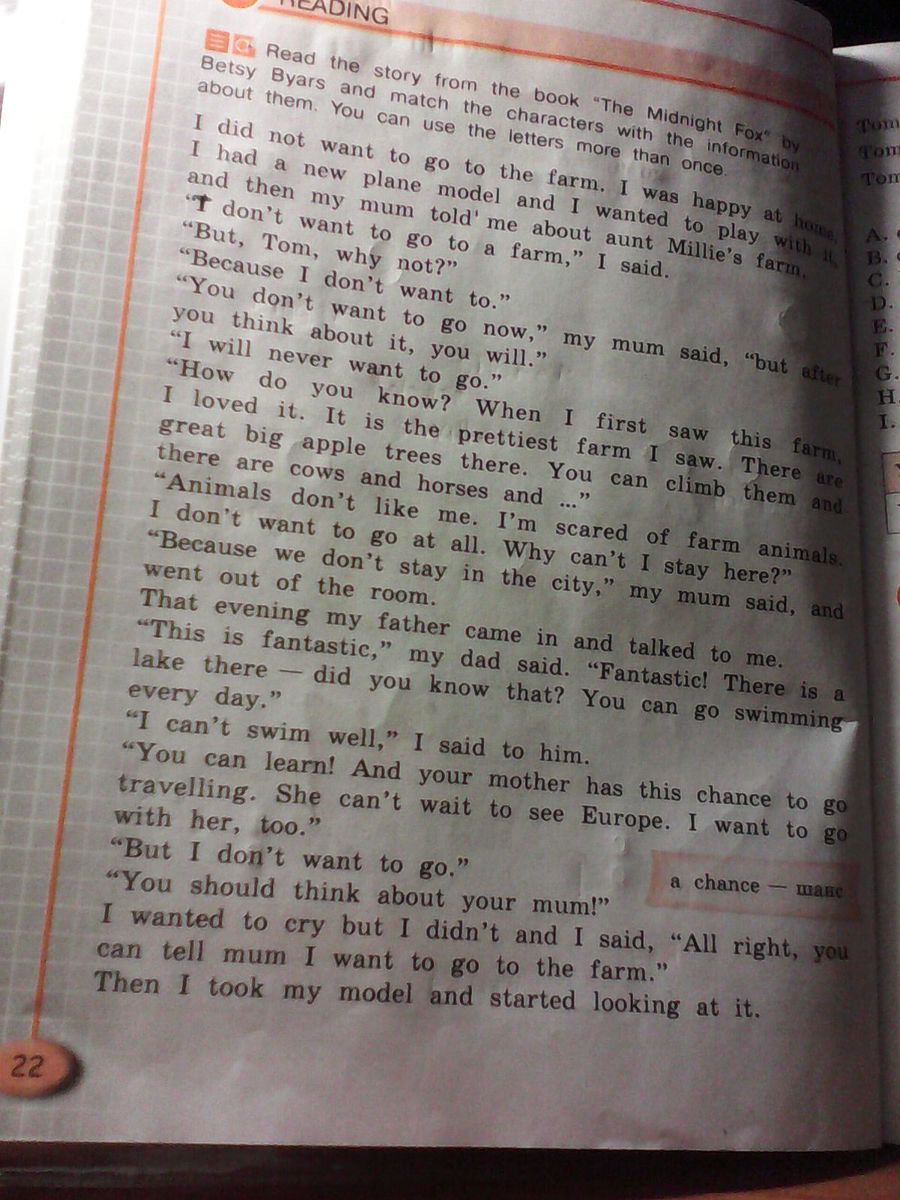 READING
Read the story from the book "The Midnight Fox" by
Betsy Byars and match the characters with the information
about them. You can use the letters more than once.
I did not want to go to the farm. I was happy at home,
I had a new plane model and I wanted to play with it,
and then my mum told me about aunt Millie's farm.
"I don't want to go to a farm," I said.
"But, Tom, why not?"
"Because I don't want to."
"You don't want to go now," my mum said, "but after
you think about it, you will."
"I will never want to go."
"How do you know? When I first saw this farm,
I loved it. It is the prettiest farm I saw. There are
great big apple trees there. You can climb them and
there are cows and horses and ..."
"Animals don't like me. I'm scared of farm animals.
I don't want to go at all. Why can't I stay here?"
"Because we don't stay in the city," my mum said, and
went out of the room.
That evening my father came in and talked to me.
"This is fantastic," my dad said. "Fantastic! There is a
lake there — did you know that? You can go swimming
every day."
"I can't swim well," I said to him.
"You can learn! And your mother has this chance to go
travelling. She can't wait to see Europe. I want to go
with her, too."
"But I don't want to go."
"You should think about your mum!"
a chance — шанс
I wanted to cry but I didn't and I said, "All right, you
can tell mum I want to go to the farm."
Then I took my model and started looking at it.
22
Tom
Tom
Tom
A.
B.
C.
D.
E.
F.
G.
H.
I.